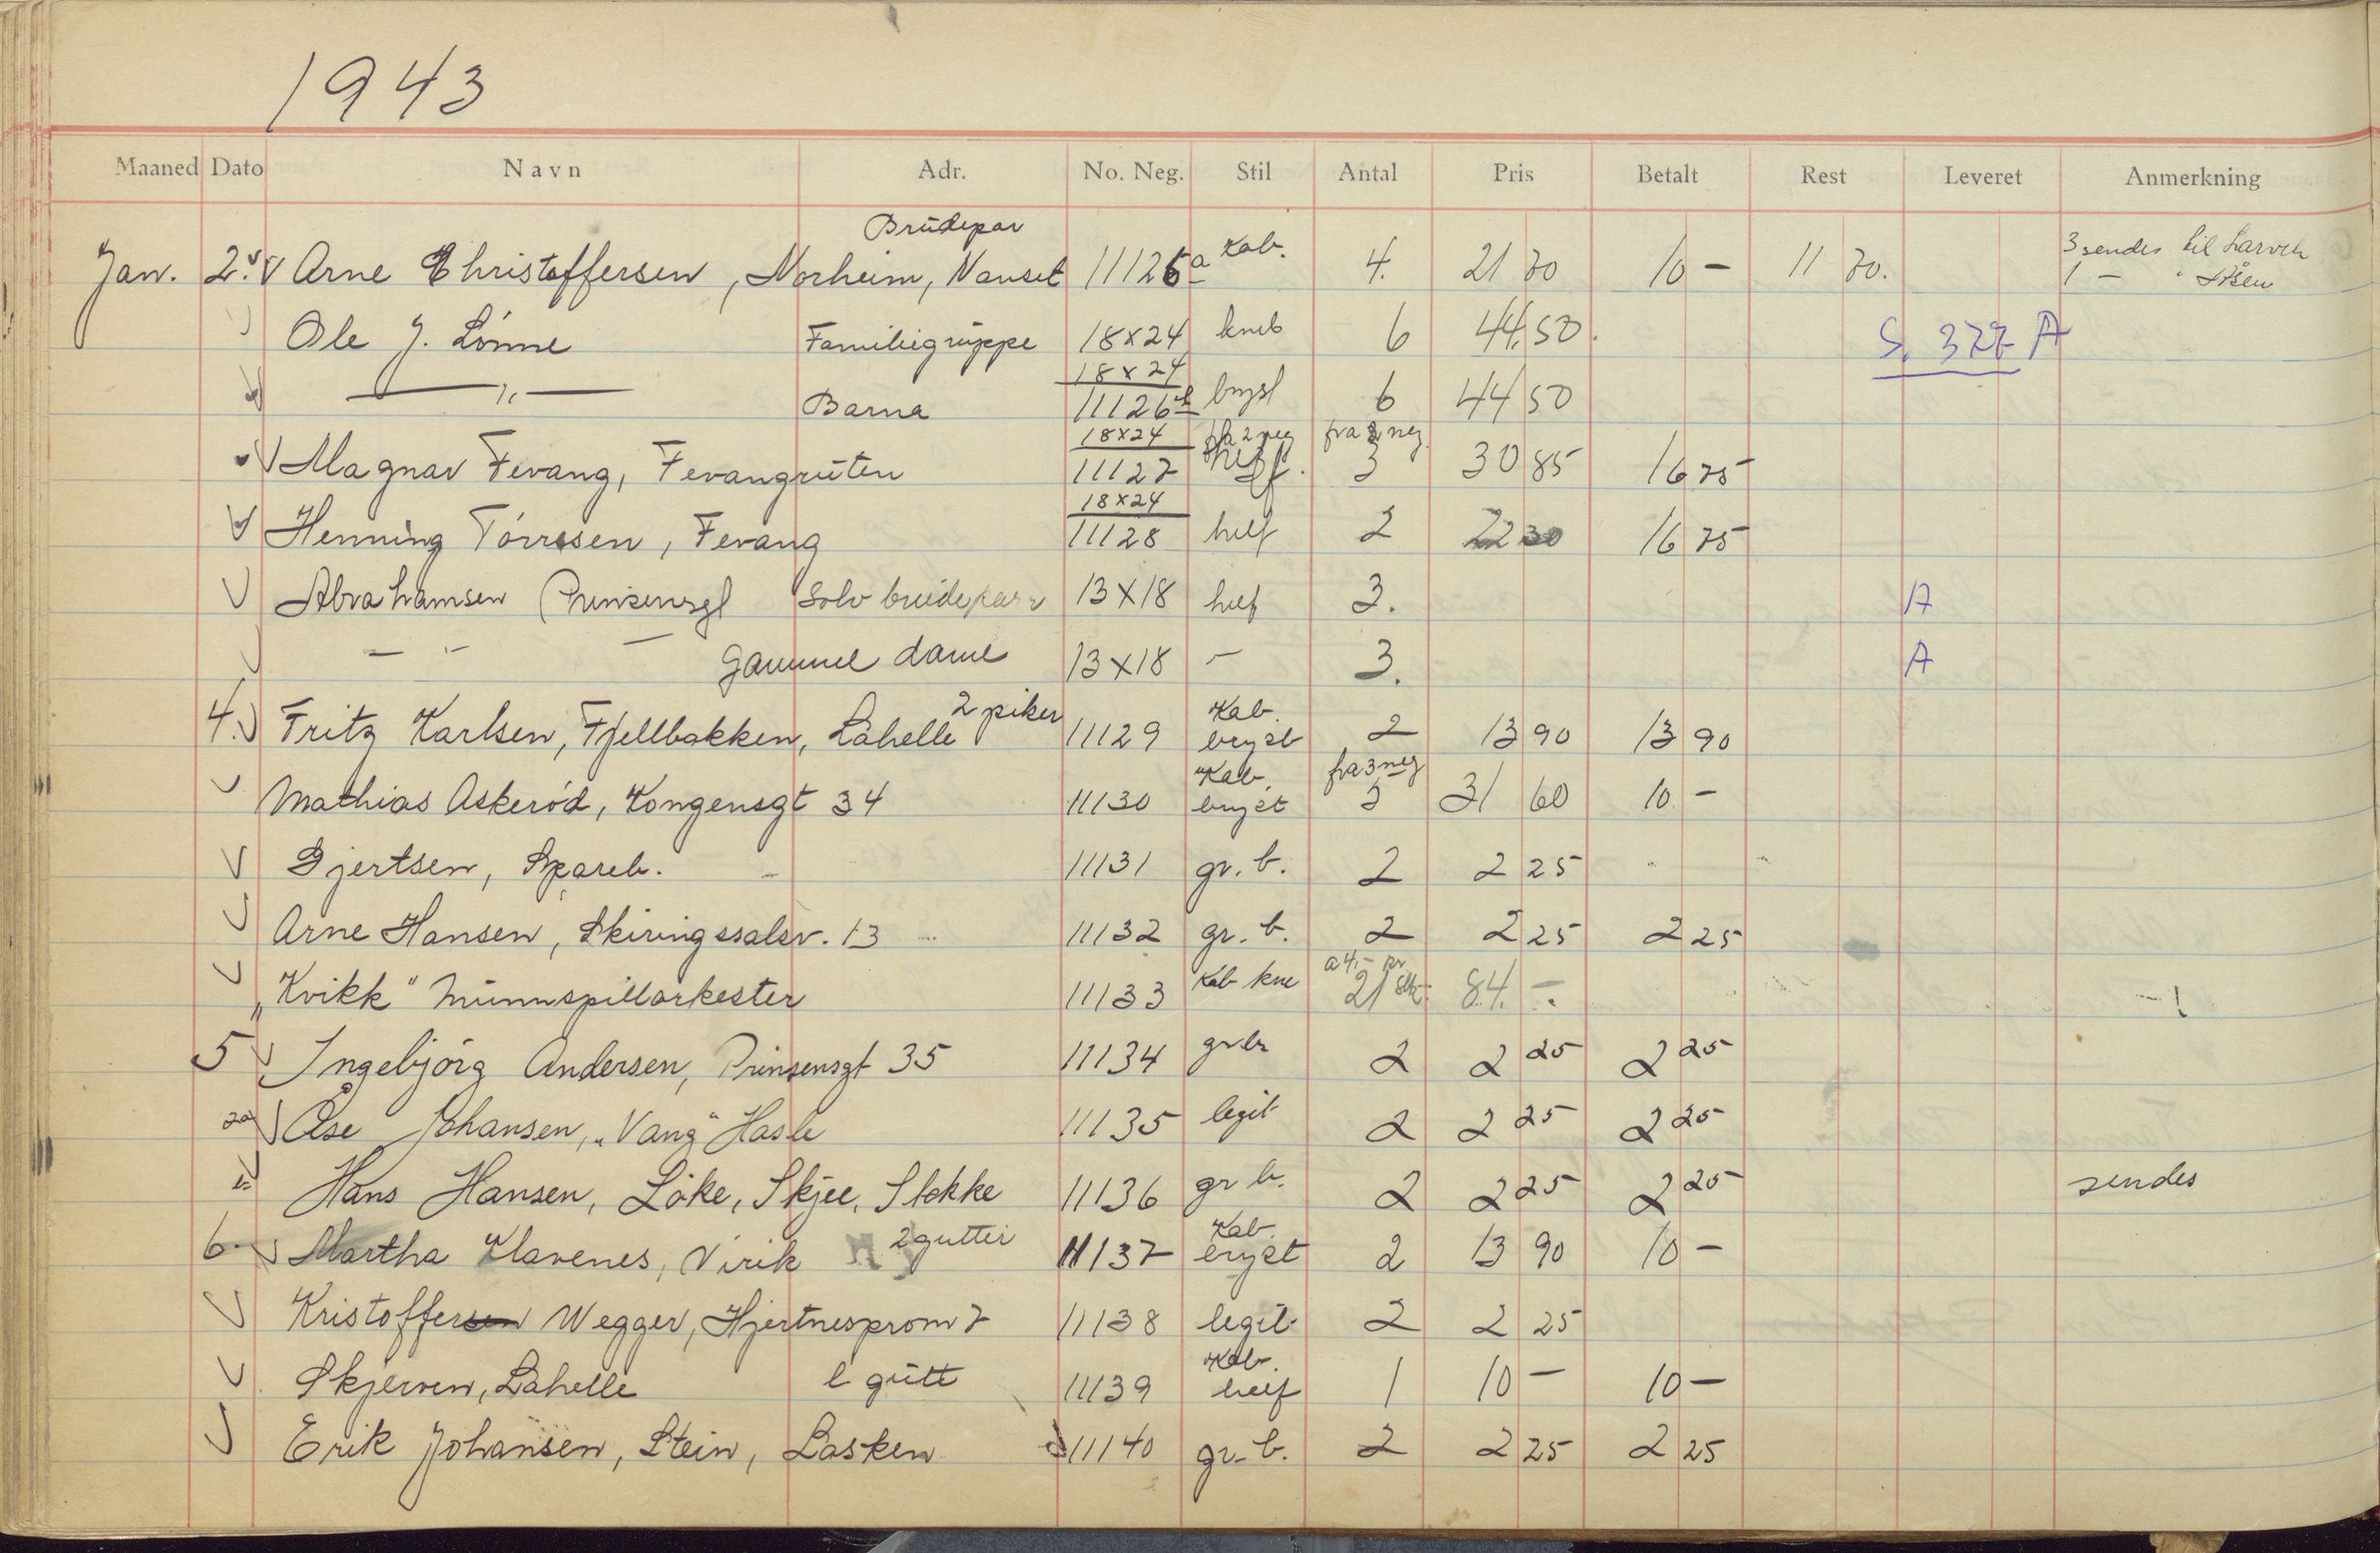 1943
Maaned Dato Navn Adr. No. Neg. Stil Antal Pris Betalt Rest Leveret Anmerkning
Brudepar
Jan. 2. Arne Christoffersen, Norheim, Nanset 11126a Kab. 4. 21 70 10 - 11 70. 3 sendes til Larvik
1 - " Åsen
Ole J. Lönne Familiegruppe 18x24 kneb 6 44,50. S. 377 A
— " — Barna 18x24 11126b bryst 6 44 50
Magnar Fevang, Fevangruten 18x24 11127 fra 2 neg helf. fra 2 neg. 3 30 85 16 75
Henning Törresen, Fevang 18x24 11128 helf 2 22 30 16 75
Abrahamsen Prinsensgt Solv brudepar 13x18 helf 3. A
— " — Gammel dame 13x18 - 3. A
4. Fritz Karlsen, Fjellbakken, Lahelle 2 piker 11129 Kab. bryst 2 13 90 13 90
Mathias Askeröd, Kongensgt 34 11130 Kab. bryst fra 3 neg 3 31 60 10 -
Gjertsen, Spareb. 11131 gr. b. 2 2 25
Arne Hansen, Skiringssalsv. 13 11132 gr. b. 2 2 25 2 25
"Kvikk" Munnspillorkester 11133 Kab kne a 4,- kr 21 stk. 84. -
5 Ingebjörg Andersen, Prinsensgt 35 11134 gr b 2 2 25 2 25
Åse Johansen, "Vang" Hasle 11135 legit 2 2 25 2 25
Hans Hansen, Löke, Skjee, Stokke 11136 gr b. 2 2 25 2 25 sendes
6. Martha Klavenes, Virik 2 gutter 11137 Kab. bryst 2 13 90 10 -
Kristoffersen Wegger, Hjertnesprom 7 11138 legit 2 2 25
Skjerven, Lahelle 1 gutt 11139 Kab. helf 1 10 - 10 -
Erik Johansen, Stein, Lasken 11140 gr. b. 2 2 25 2 25